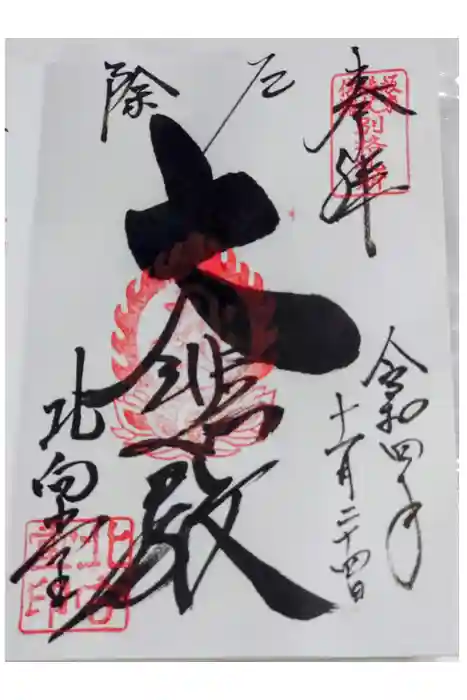 奉拝
令和四年
十一月二十四日
厄除
大悲殿
北向堂
北向堂印